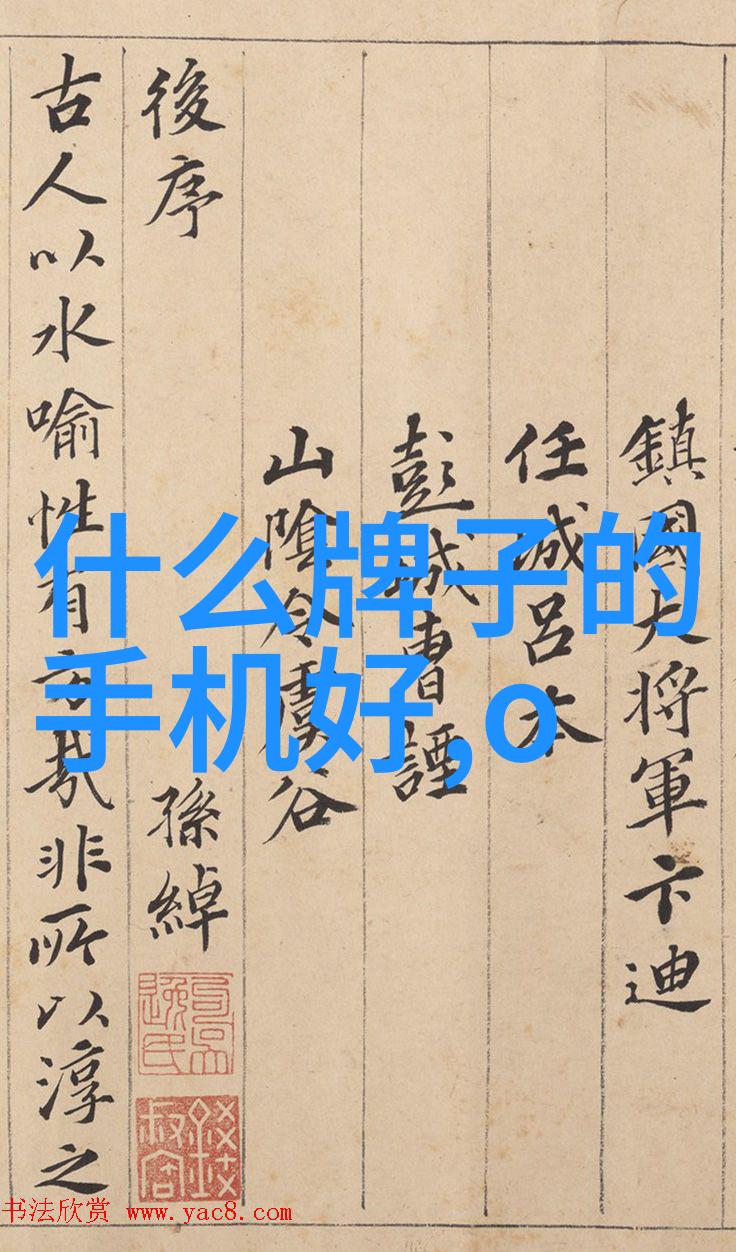 鎮國大将軍卞迪
任城呂本
彭城曹諲
山陰令虞谷
後序
孫綽
古人以水喻性有方哉非所以淳之
什么牌子的
手机好,o
书法欣赏 www.yac8.com